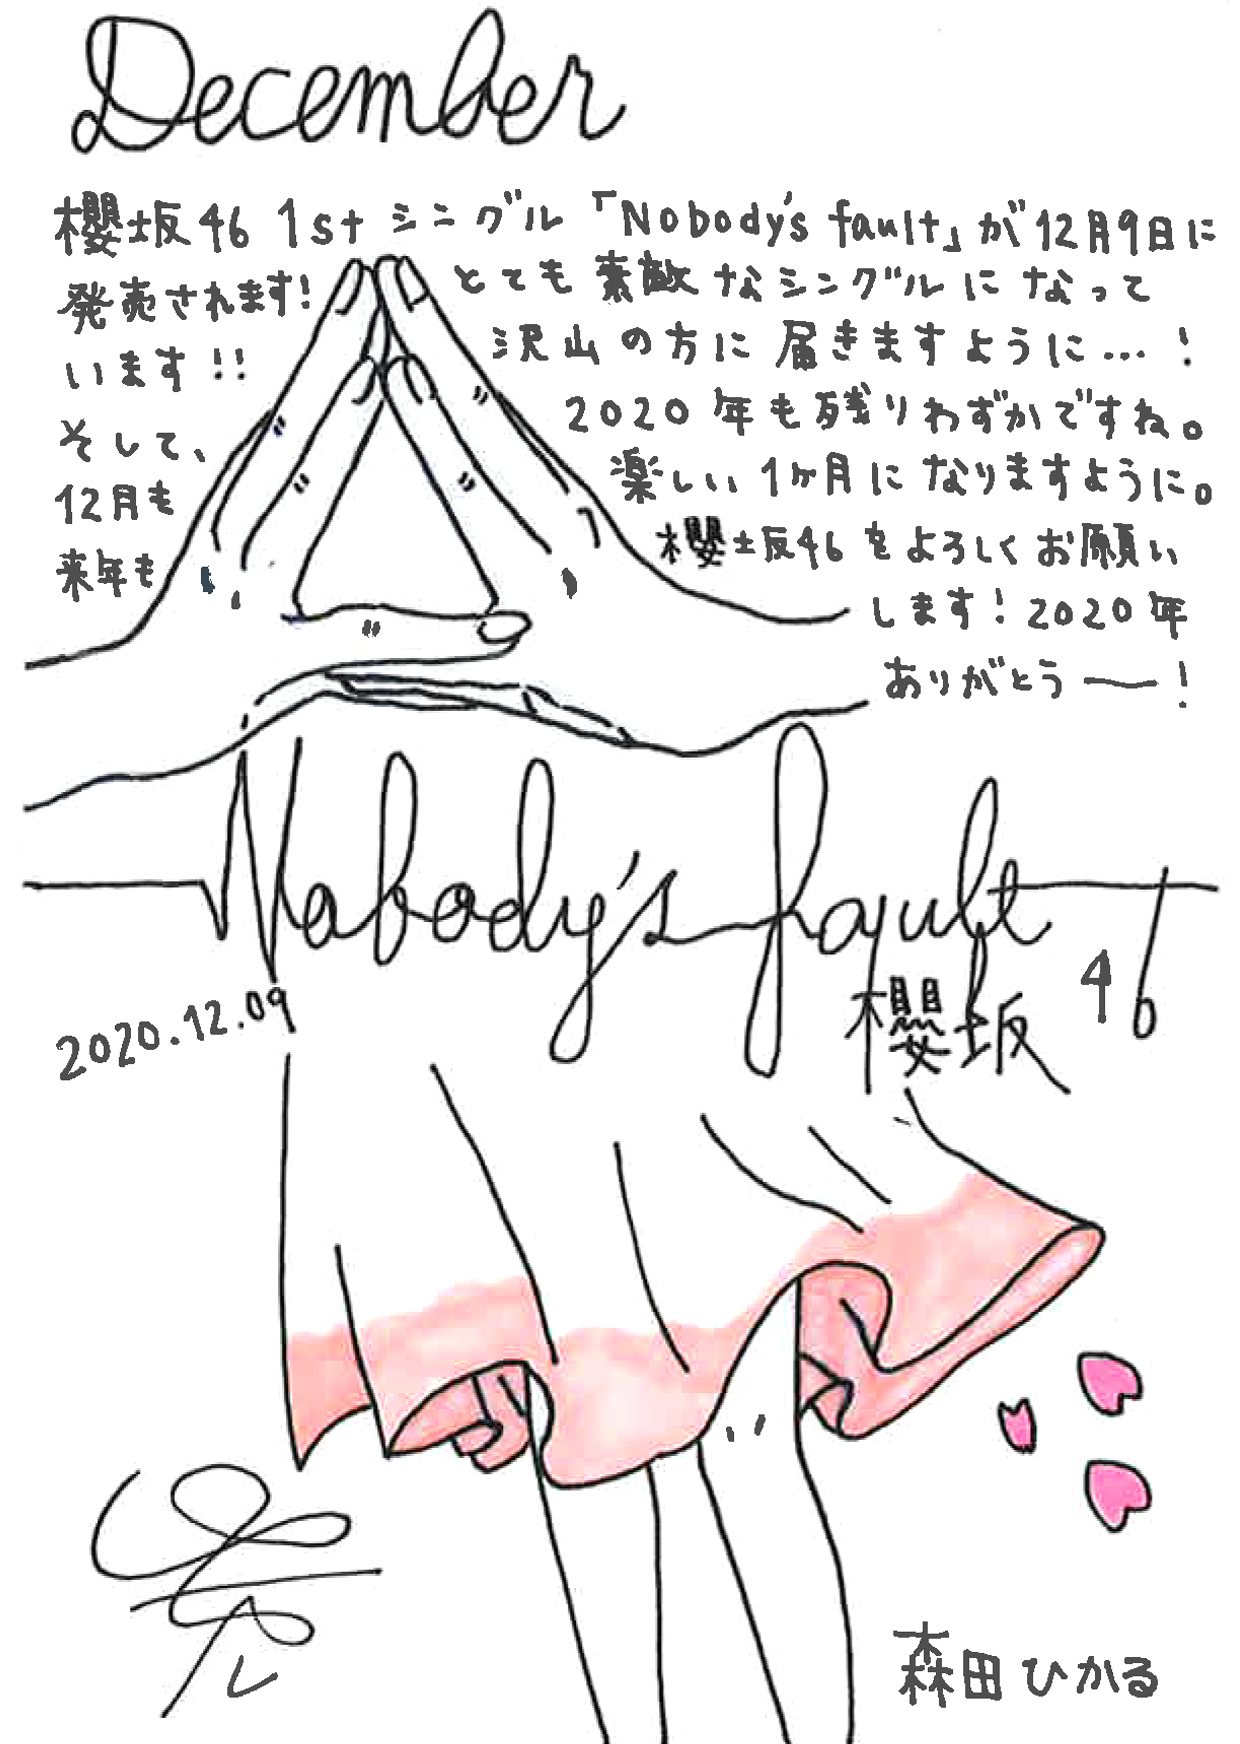 December
櫻坂46 1stシングル「Nobody's fault」が12月9日に
発売されます! とても素敵なシングルになって
います!! 沢山の方に届きますように…!
そして、 2020年も残りわずかですね。
12月も 楽しい1ヶ月になりますように。
来年も 櫻坂46をよろしくお願い
します!2020年
ありがとうー!
Nobody's fault
櫻坂46
2020.12.09
森田ひかる